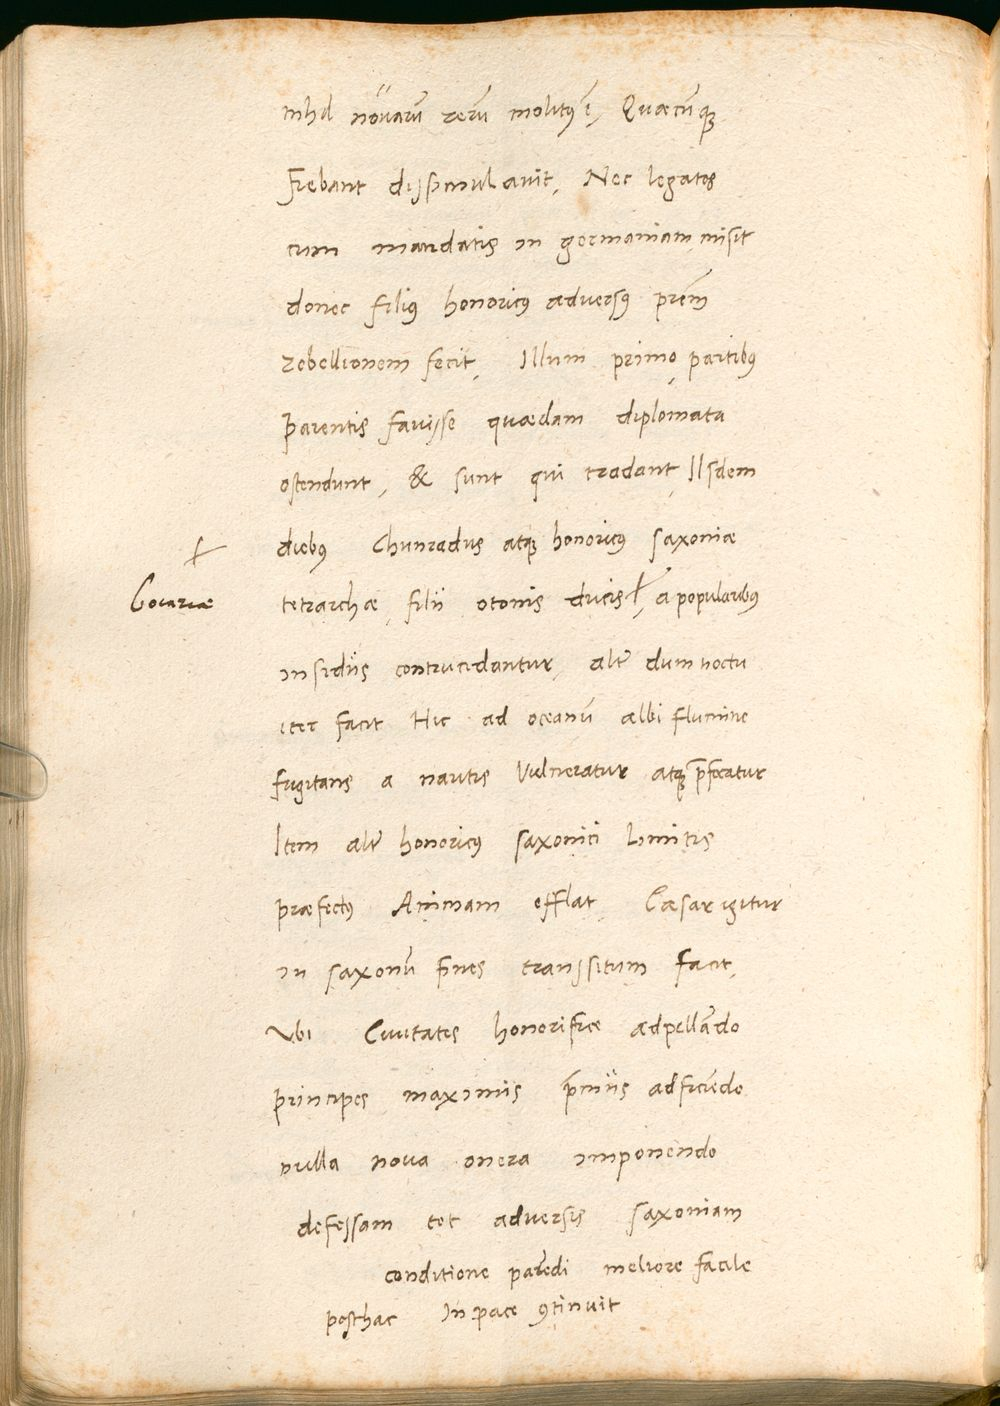 nihil nouarū rerū molitꝰ ē, Quæcūqꝫ
fiebant dissimulauit, Nec legatos
cum mandatis in germaniam misit
donec filiꝰ honoricꝰ aduersꝰ prēm
rebellionem fecit, Illum primo, partibꝰ
parentis fauisse quædam diplomata
ostendunt, & sunt qui tradant IIsdem
diebꝰ Chunradus atqꝫ honoricꝰ saxoniæ
Boiariæ
tetrarchæ, filii otonis ducis, a popularibꝰ
insidiis contrucidantur, altē dum noctu
iter facit Hic ad oceanū albi flumine
fugitans a nautis Vulneratur atqꝫ p̄focatur
Item altē honoricꝰ saxonici Limitis
præfectꝰ Animam efflat Cæsar igitur
in saxonū fines transsitum facit,
Vbi Ciuitates honorifice adpellādo
principes maximis p̄miis adficiēdo
nulla noua onera imponendo
defessam tot aduersis saxoniam
conditione parēdi meliore facile
posthac In pace ꝯtinuit